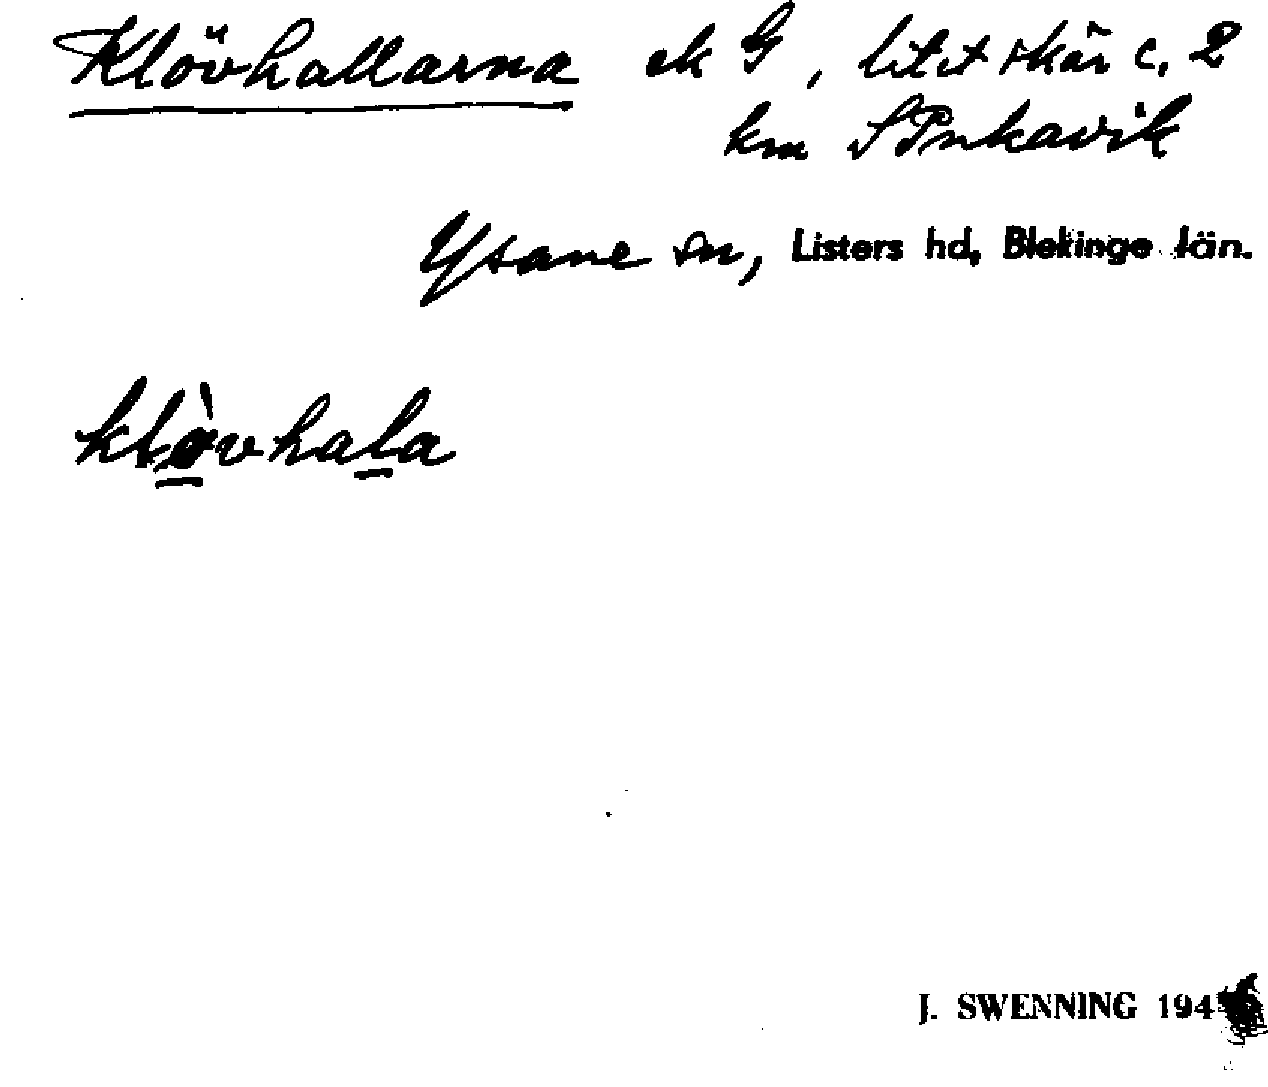 Klövhallarna ek G, litet skär c. 2
km S Pukavik
Ysane sn, Listers hd, Blekinge län.
klòvhala
J. SWENNING 194